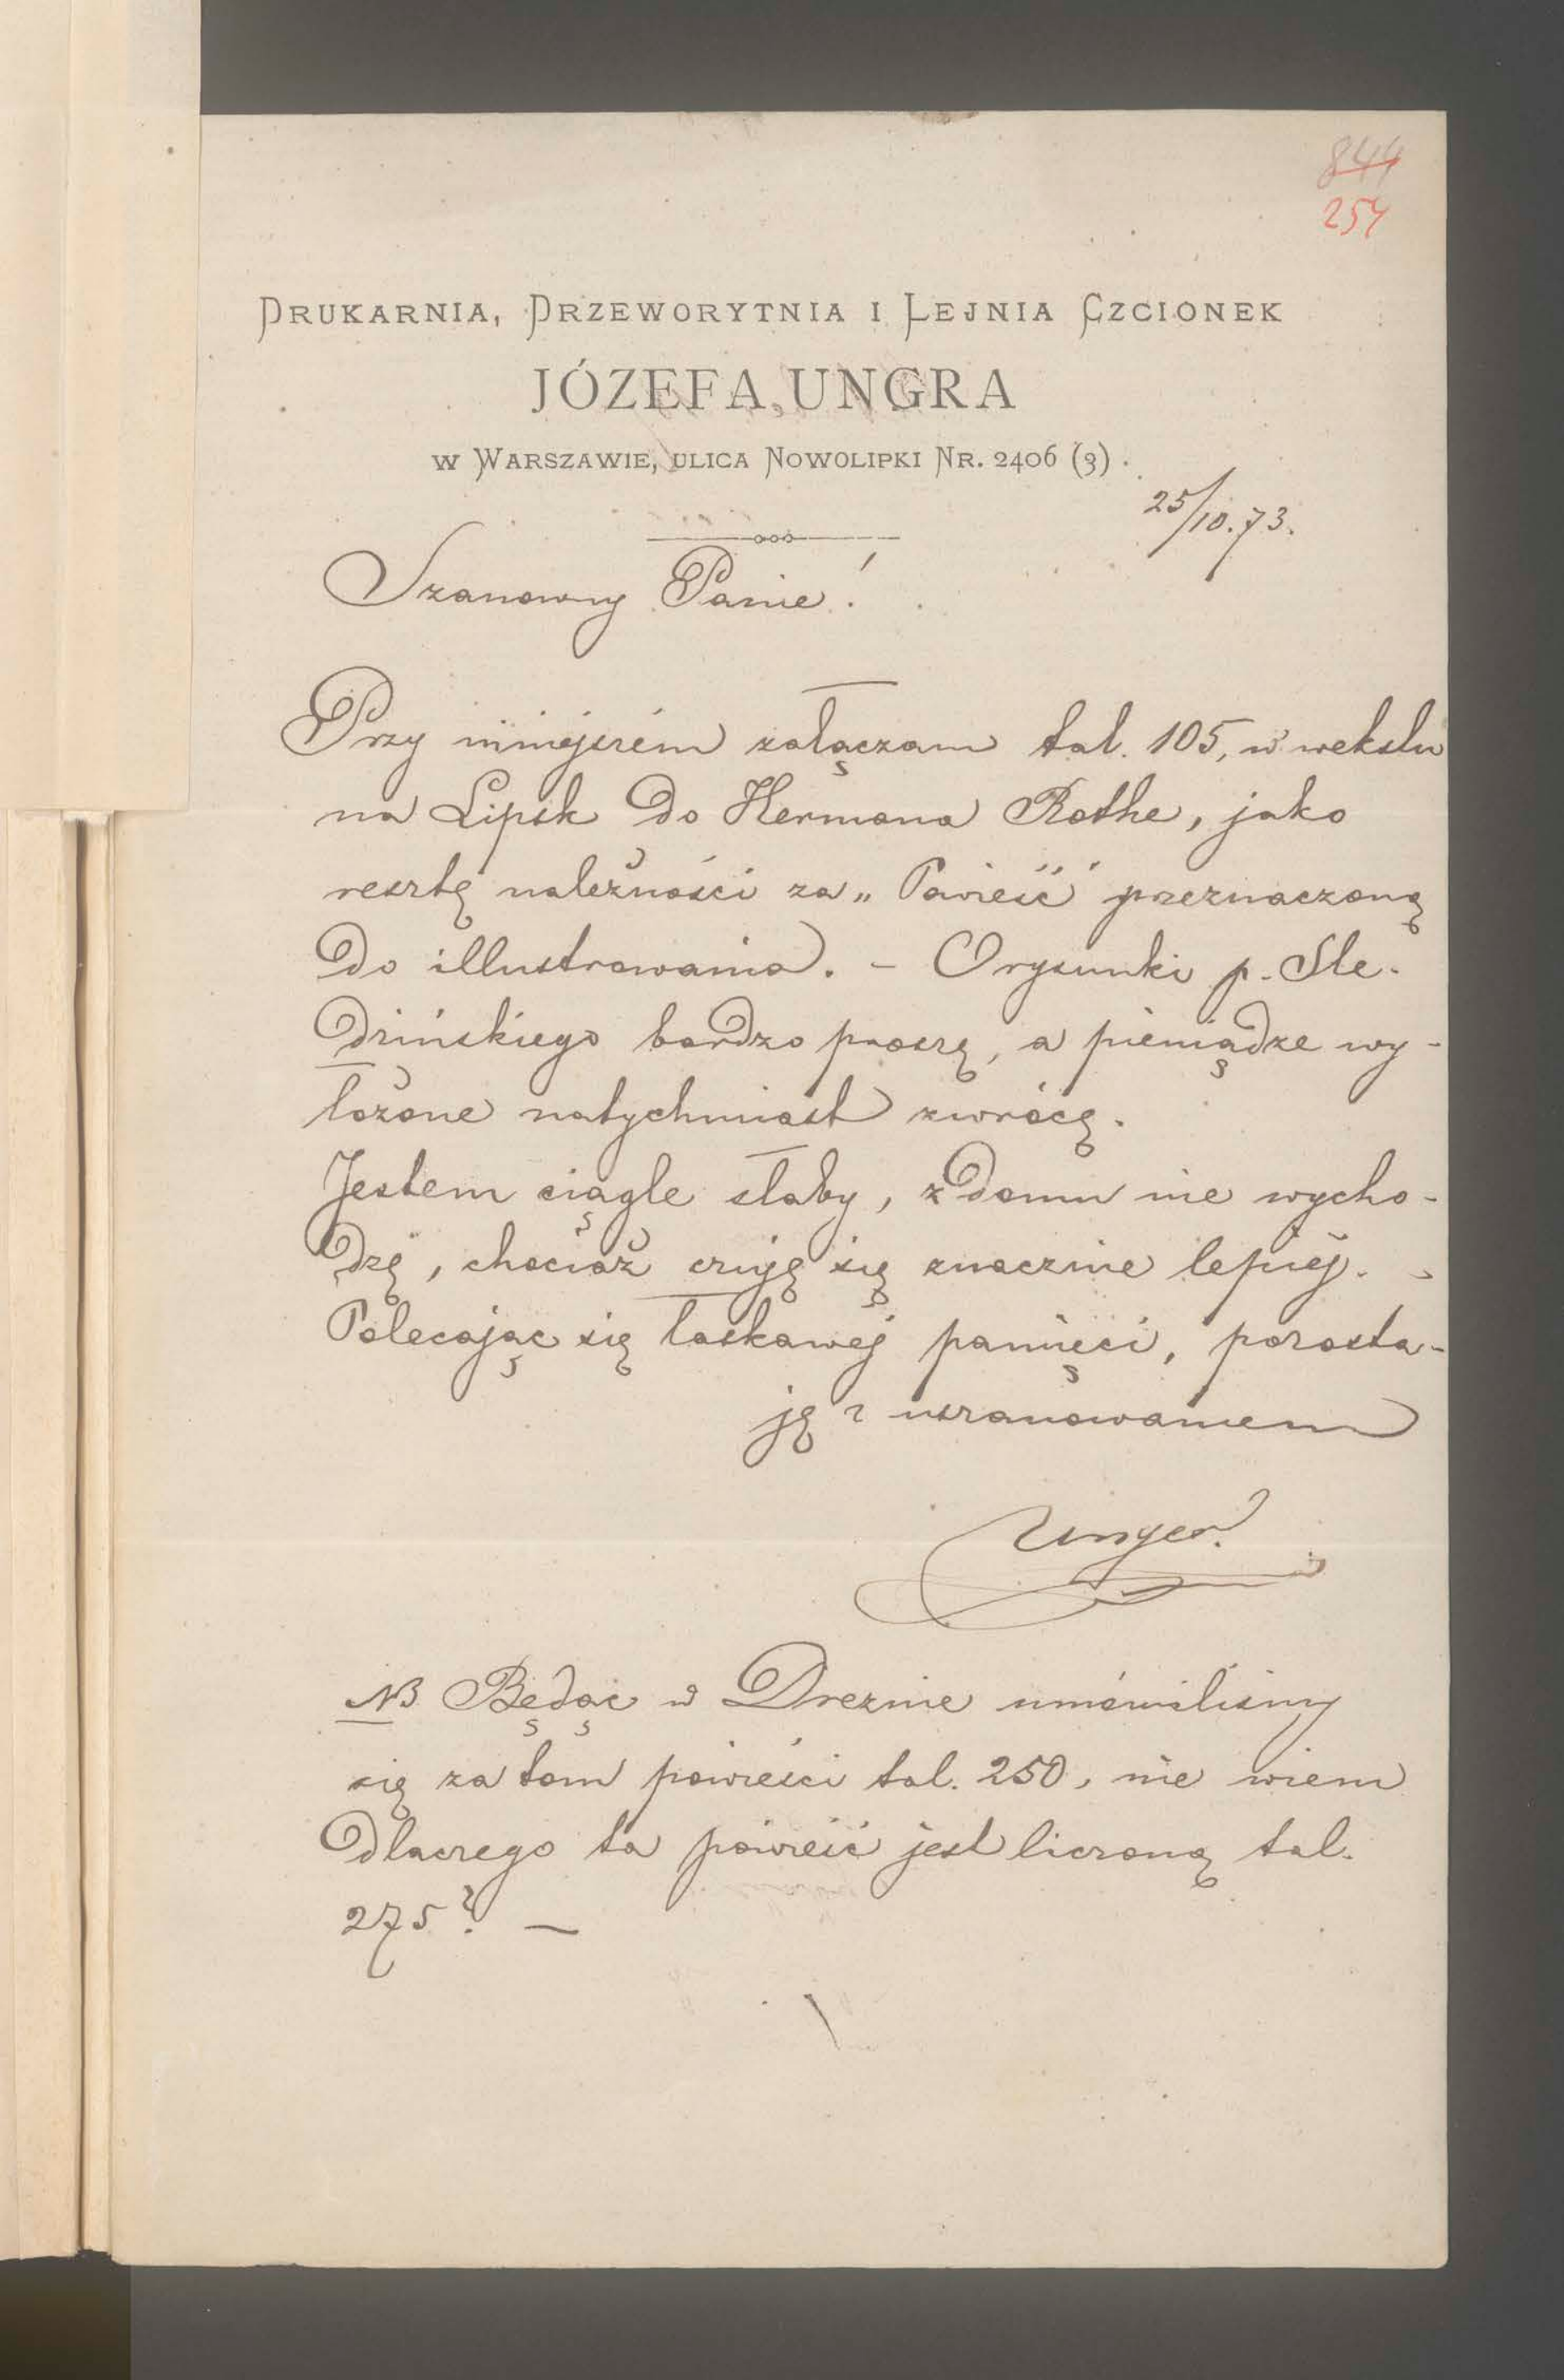 844
254
DRUKARNIA, DRZEWORYTNIA I LEJNIA CZCIONEK
JÓZEFA UNGRA
W WARSZAWIE, ULICA NOWOLIPKI NR. 2406 (3).
25/10.73.
Szanowny Panie!
Przy niniejszém załączam tal. 105, w wekslu
na Lipsk do Hermana Rothe, jako
resztę należności za „Powieść" przeznaczoną
do illustrowania. – O rysunki p. Śle-
dzińskiego bardzo proszę, a pieniądze wy-
łożone natychmiast zwrócę.
Jestem ciągle słaby, z domu nie wycho-
dzę, chociaż czuję się znacznie lepiéj.
Polecając się łaskawej pamięci, pozosta-
ję z uszanowaniem
Unger.
NB Będąc w Dreznie umówiliśmy
się za tom powieści tal. 250, nie wiem
dlaczego ta powieść jest liczoną tal.
275? —